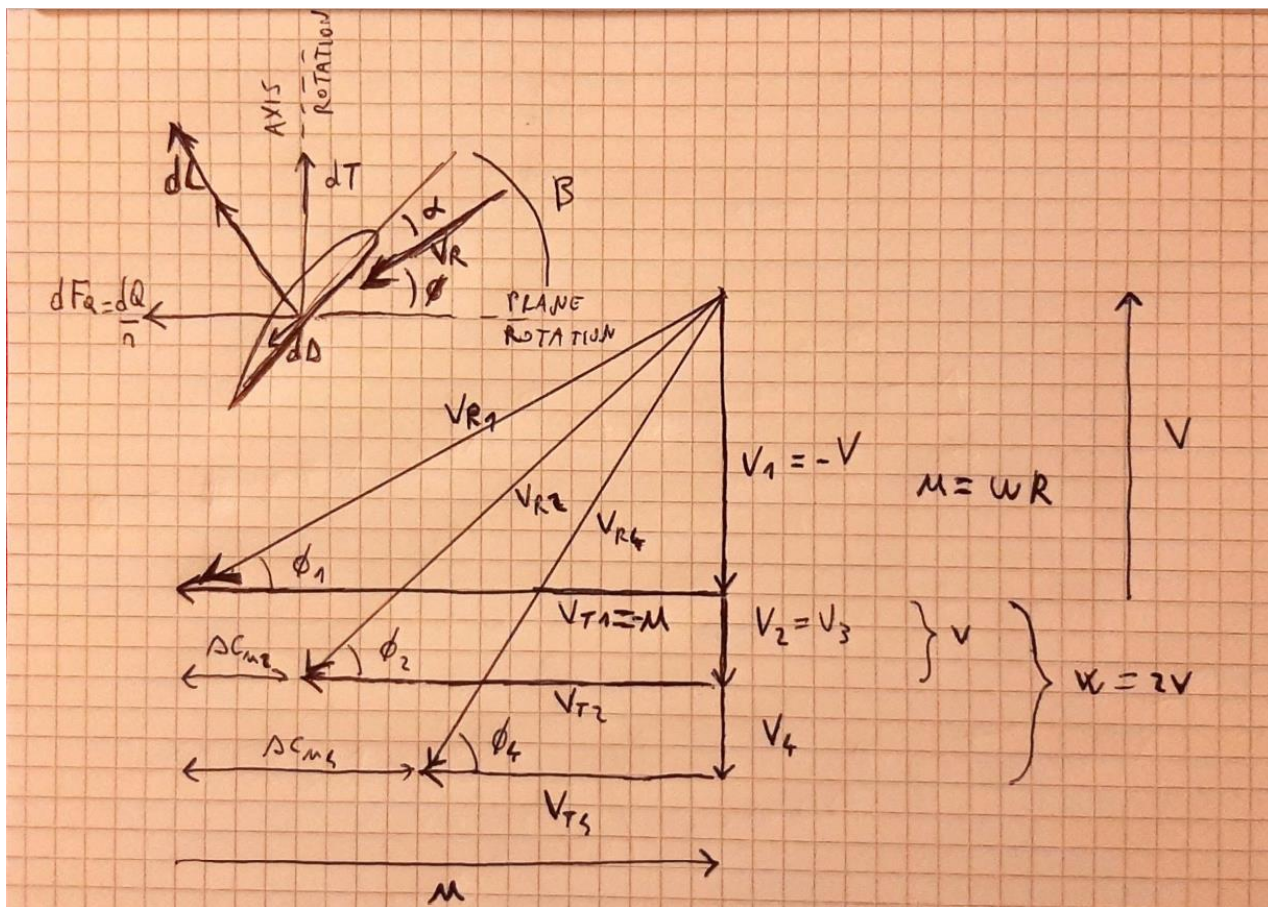 AXIS
ROTATION
dL
dT
α
B
VR
ϕ
dFQ = dQ
r
dD
PLANE
ROTATION
VR1
VR2
VR4
V1 = -V
u = wR
V
ϕ1
VT1 = -u
V2 = V3
v
ΔCu2
ϕ2
VT2
w = 2v
ΔCu4
ϕ4
V4
VT4
u